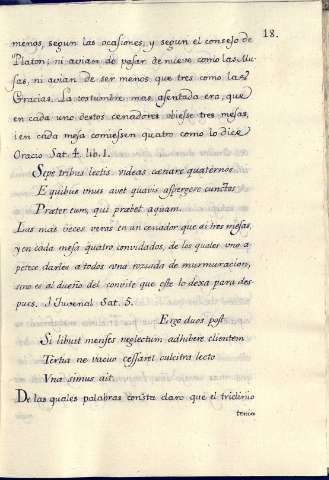 18.
menos, segun las ocasiones, y segun el consejo de
Platon: ni avian de pasar de nueve como las Mu-
sas, ni avian de ser menos que tres como las
Gracias. La costumbre mas asentada era, que
en cada uno destos cenadores obiesse tres mesas,
i en cada mesa comiessen quatro como lo dice
Oracio Sat. 4. lib. 1.
Sepe tribus lectis videas coenare quaternos
E quibus vnus avet quavis aspergere cunctos
Præter eum, qui præbet aquam.
Las mas veces veras en un cenador que ai tres mesas,
y en cada mesa quatro convidados, de los quales vno a-
petece darles a todos vna rozada de murmuracion,
sino es al dueño del convite que este lo dexa para des-
pues. I Juvenal Sat. 5.
Ergo duos post
Si libuit menses neglectum adhibere clientem
Tertia ne vacuo cessaret culcitra lecto
Vna simus ait.
De las quales palabras consta claro que el triclinio
tenia